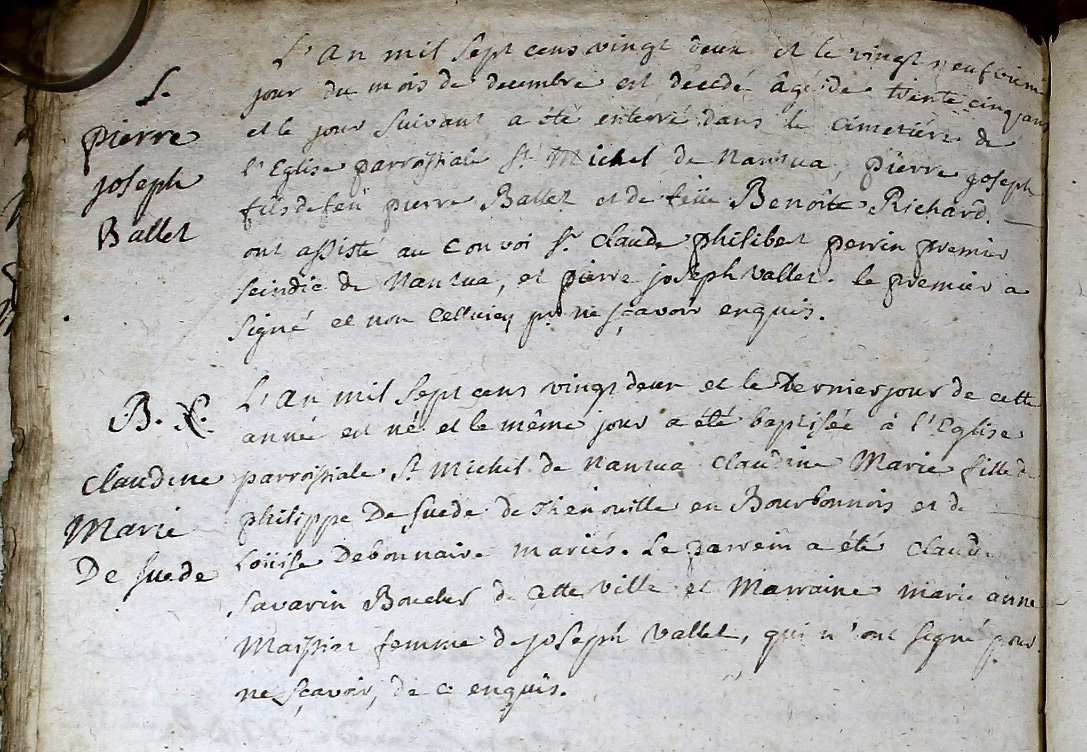 L'An mil sept cens vingt deux et le vingt neufviem
jour du mois de decembre est décédé âgé de trente cinq ans
et le jour suivant a été enterré dans le cimetiére de
l'Eglise parroissiale st Michel de Nantua, pierre joseph
fils de feu pierre Ballet et de feüe Benoite Richard.
ont assisté au convoi sr. claude philibet perrin premier
scindic de Nantua, et pierre joseph vallet. le premier a
signé et non pr. ne sçavoir enquis.
S.
pierre
joseph
Ballet
L'An mil sept cens vingt deux et le dernier jour de cette
année est né et le même jour a été baptisée à l'Eglise
parroissiale St. Michel de Nantua claudine Marie fille de
philippe De suede de Thenouille en Bourbonnois et de
Loüise Debonnaire mariés. Le parrein a été claude
savarin Boucher de cette ville et Marraine marie anne
Maissiat femme de joseph vallet, qui n'ont signé pour
ne sçavoir, de ce enquis.
B.
claudine
Marie
De suede